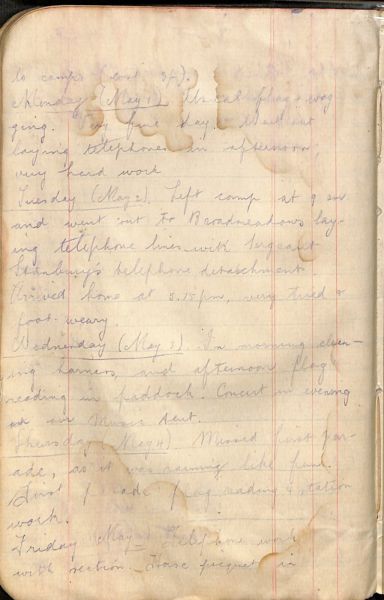 to camp (cost 3d).
Monday (May 1). Usual flag wag-
ging. Very fine day. Went out
laying telephones in afternoon,
very hard work
Tuesday (May 2). Left camp at 9 am
and went out to Broadmeadows lay-
ing telephone lines with Sergeant
telephone detachment.
Arrived home at 5.15 pm, very tired &
foot-weary.
Wednesday (May 3). In morning clean-
ing harness, and afternoon flag
reading in paddock. Concert in evening
in tent.
Thursday (May 4) Missed first par-
ade, as it was raining like fun.
parade flag reading & station
work.
Friday (May Telephone work
with section. Horse picquet in